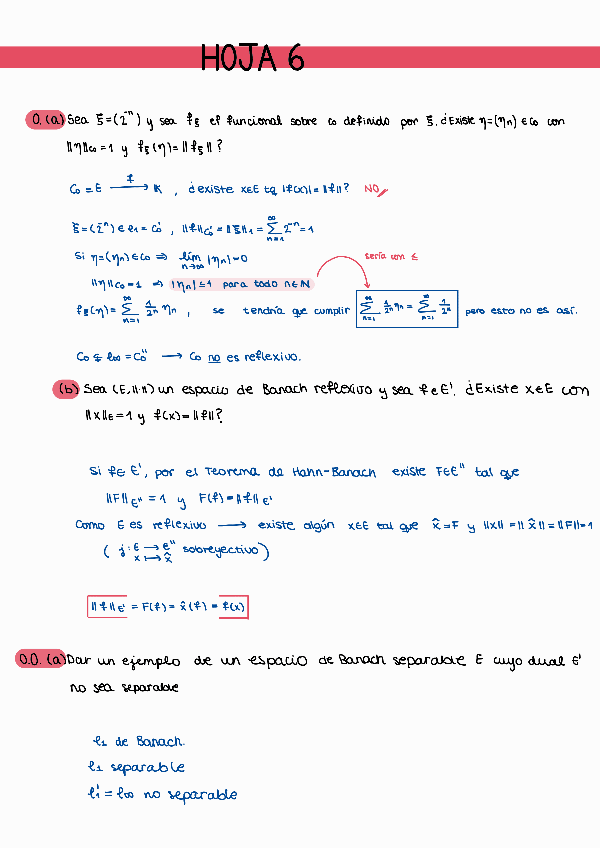 HOJA 6
0. (a) Sea ξ=(2⁻ⁿ) y sea f_ξ el funcional sobre c₀ definido por ξ. ¿Existe η=(ηₙ)∈c₀ con
‖η‖c₀=1 y f_ξ(η)=‖f_ξ‖?
c₀ = E —f→ K , ¿existe x∈E tq |f(x)|=‖f‖? NO
ξ=(2⁻ⁿ)∈ℓ₁=c₀' , ‖f‖c₀'=‖ξ‖₁=∑_{n=1}^∞ 2⁻ⁿ=1
Si η=(ηₙ)∈c₀ ⇒ lim_{n→∞} |ηₙ|=0 sería un ≤
‖η‖c₀=1 ⇒ |ηₙ|≤1 para todo n∈N
f_ξ(η)=∑_{n=1}^∞ 1/2ⁿ ηₙ , se tendría que cumplir ∑_{n=1}^∞ 1/2ⁿ ηₙ = ∑_{n=1}^∞ 1/2ⁿ pero esto no es así.
c₀ ⊊ ℓ∞ = c₀'' → c₀ no es reflexivo.
(b) Sea (E,‖·‖) un espacio de Banach reflexivo y sea f∈E'. ¿Existe x∈E con
‖x‖_E=1 y f(x)=‖f‖?
Si f∈E', por el Teorema de Hahn-Banach existe F∈E'' tal que
‖F‖_E''=1 y F(f)=‖f‖_E'
Como E es reflexivo → existe algún x∈E tal que x̂=F y ‖x‖=‖x̂‖=‖F‖=1
( j: E → E'' sobreyectivo)
x ↦ x̂
‖f‖_E' = F(f) = x̂(f) = f(x)
0.0. (a) Dar un ejemplo de un espacio de Banach separable E cuyo dual E'
no sea separable
ℓ₁ de Banach.
ℓ₁ separable
ℓ₁' = ℓ∞ no separable